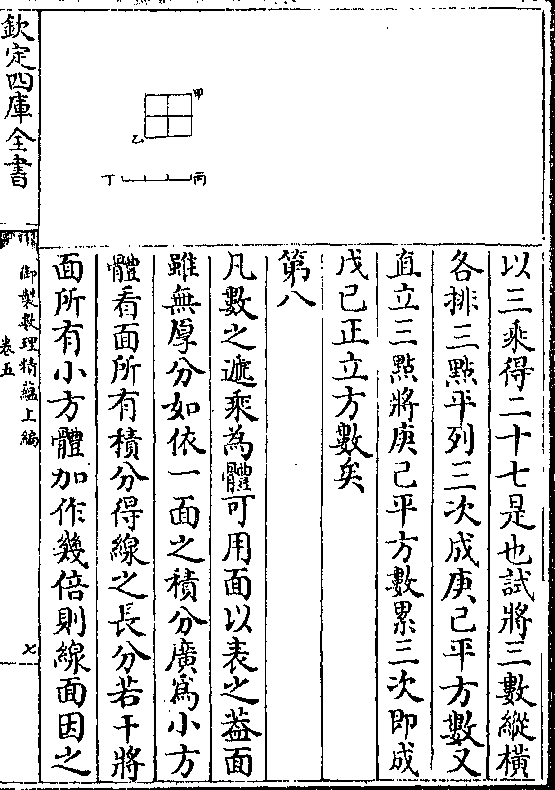 以三乘得二十七是也試將三數縱橫
各排三點平列三次成庚己平方數又
直立三點將庚己平方數累三次即成
戊己正立方數矣
第八
凡數之遞乘為體可用面以表之葢面
雖無厚分如依一面之積分廣為小方
體看面所有積分得線之長分若干將
面所有小方體加作幾倍則線面因之
甲
乙
丙
丁
欽定四庫全書
御製數理精蘊上編
卷五
七